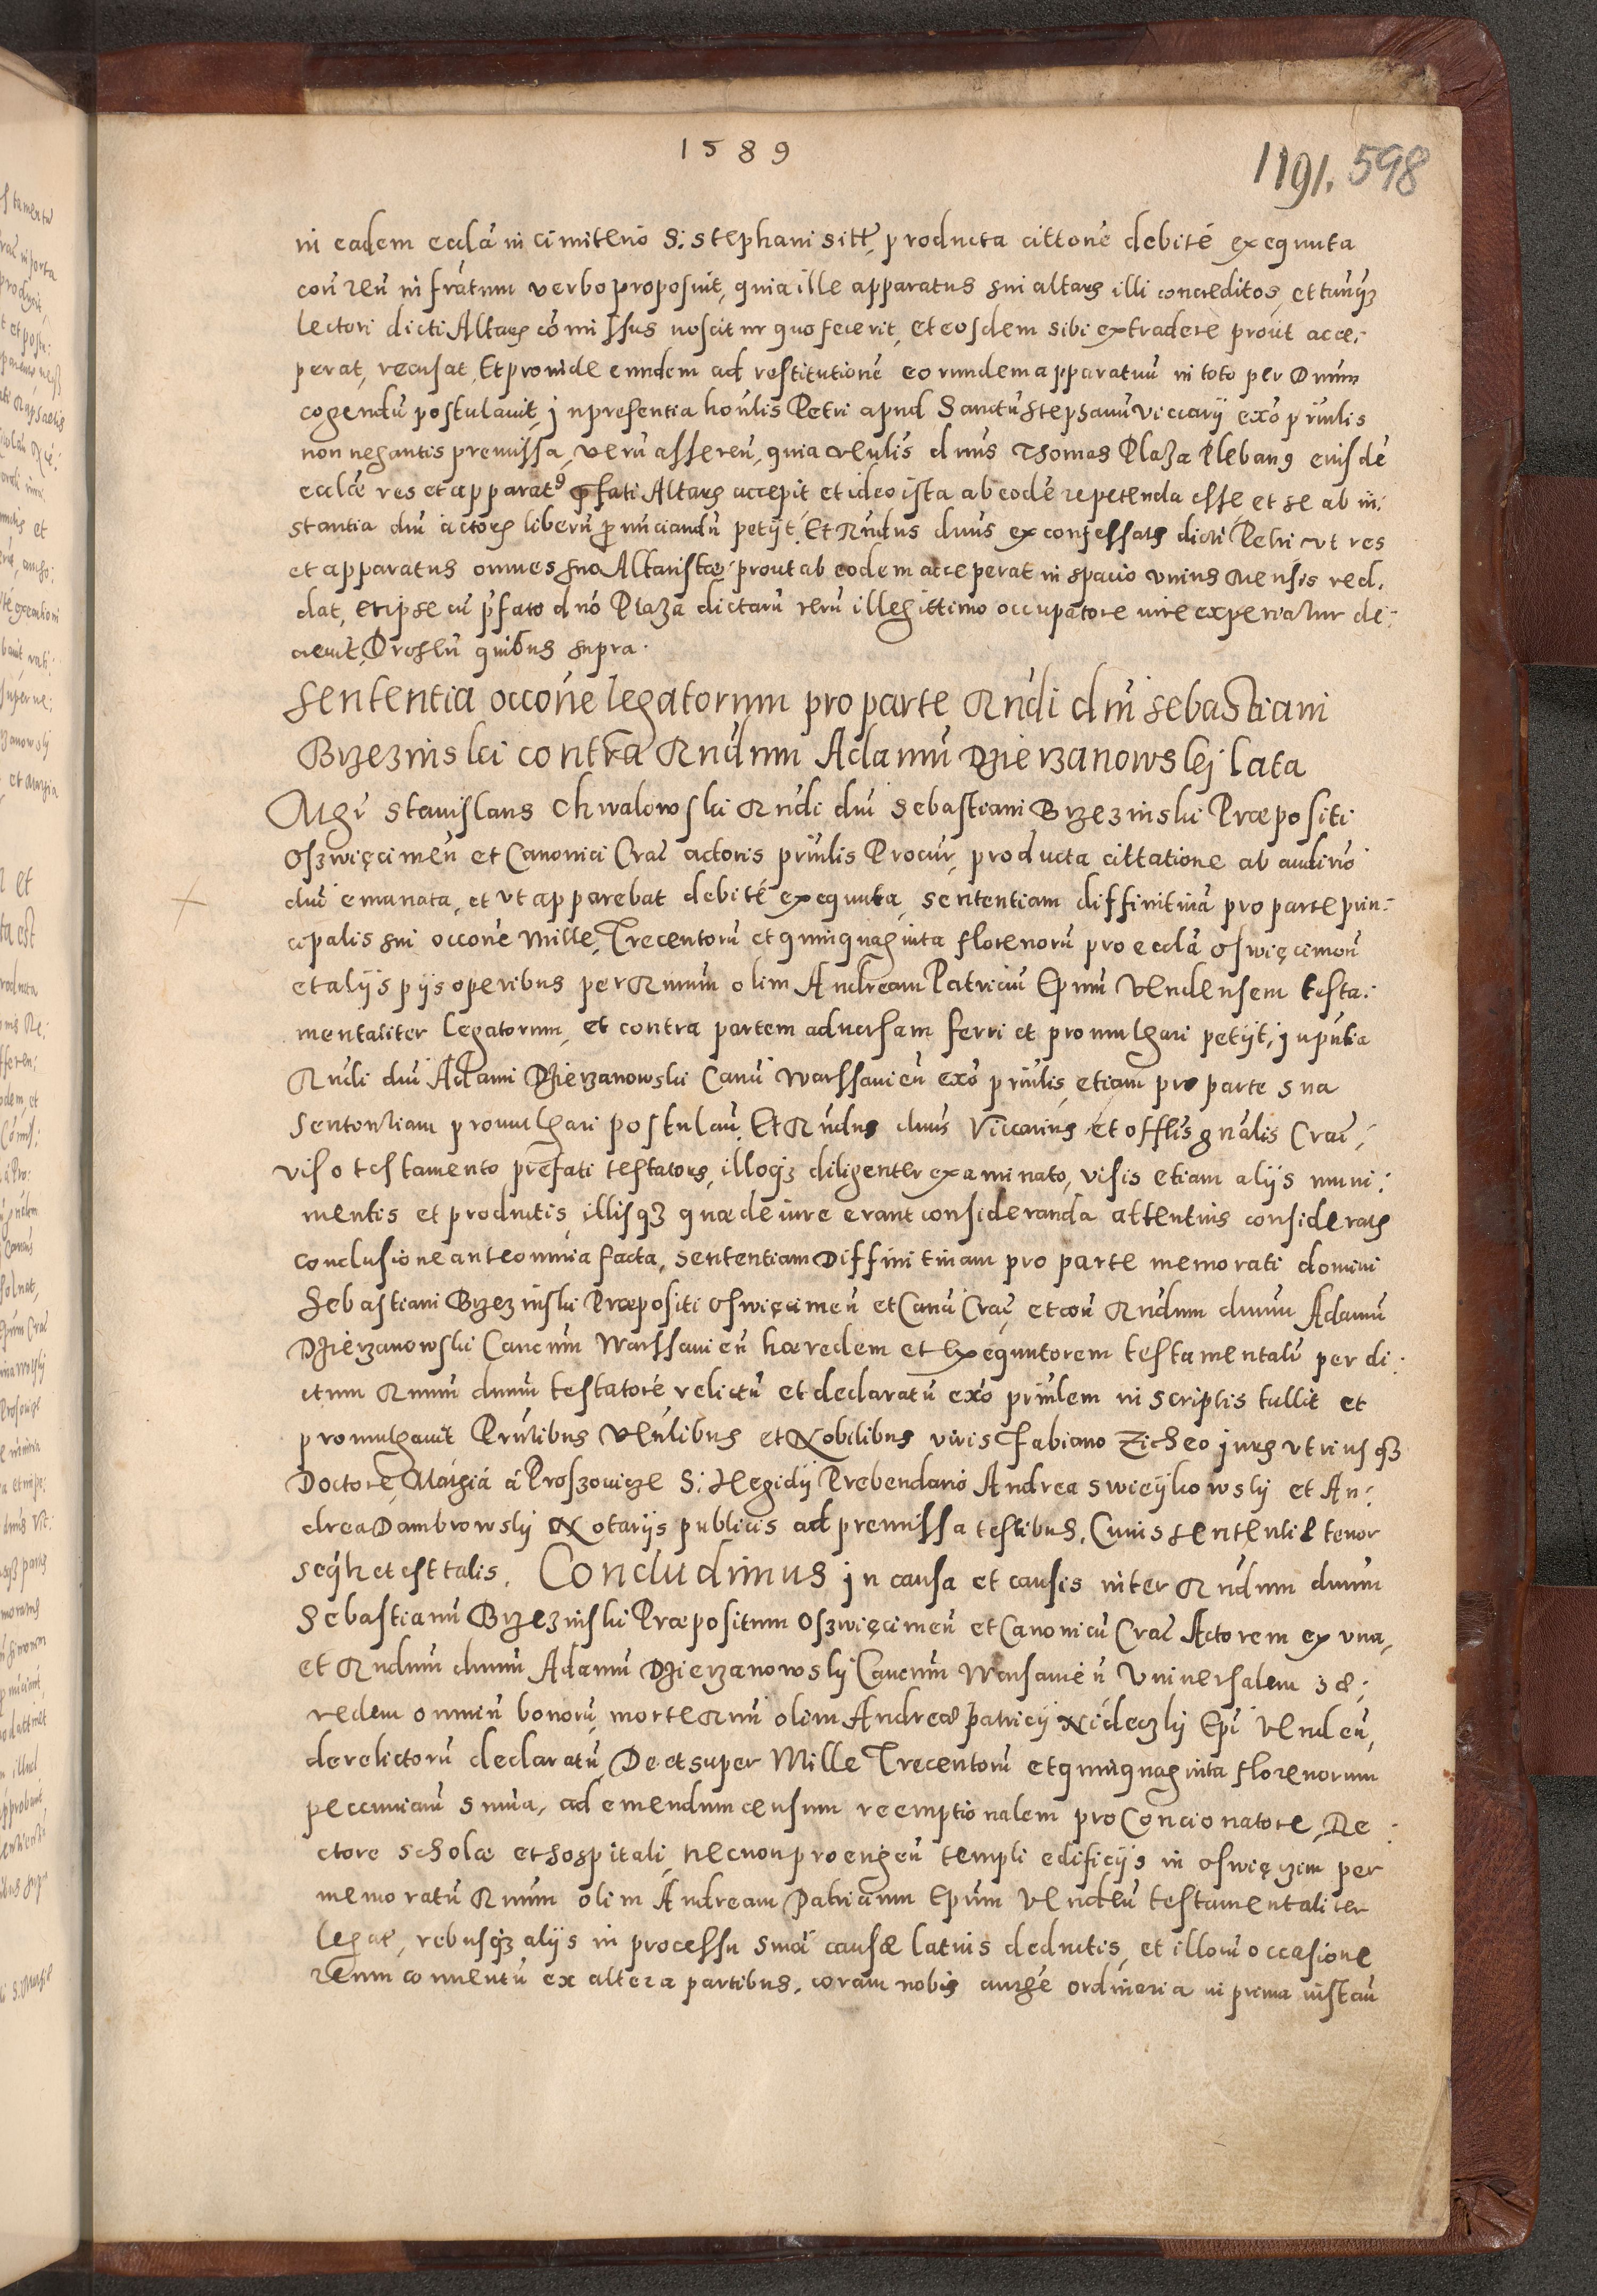 1589
1191. 598
in eadem eccla in cimiterio S. Stephani sitt, producta cittone debité exequuta
con reu infratum verbo proposuit, quia ille apparatus sui altaris illi concreditos, et tanq3
Lectori dicti Altaris comissus noscitur quo fecerit, et eosdem sibi extradere prout acce:
perat, recusat, Et proinde eundem ad restitutione eorundem apparatuu in toto per Dnum
cogendu postulavit, in presentia honlis Petri apud Sanctu Stephanu viccarij exo prinlis
non negantis premissa, veru asseren, quia venlis dnus Thomas Plaza Plebanus eiusde
ecclae res et apparatus pfati Altaris accepit et ideo ista ab eode repetenda esse et se ab in:
stantia dni actoris liberu pnunciandu petijt. Et Rndus dnus ex confessatis dicti Petri ut res
et apparatus omnes suo Altaristae prout ab eodem acceperat in spacio unius mensis red.
dat, et ipse cu pfato dno Plaza dictaru reru illegittimo occupatore iure experiatur de:
crevit, Presen quibus supra.
Sententia occone legatorum pro parte Rndi dni Sebastiani
Brzezinski contra Rndum Adamu Dzierzanowskj lata
Mgr Stanislaus Chwalowski Rndi dni Sebastiani Brzezinski Praepositi
Oszwięcimen et Canonici Crac actoris prinlis Procur, producta cittatione ab audirio
dni emanata, et ut apparebat debité exequuta, sententiam diffinitiva pro parte prin:
cipalis sui occone Mille, Trecentoru et quinquaginta florenoru pro eccla Oswięcimen
et alijs pijs operibus per Rmum olim Andream Patriciu Epum Vendensem testa:
mentaliter legatorum, et contra partem adversam ferri et promulgari petijt, in pntia
Rndi dni Adami Dzierzanowski Canci Warssavien exo prinlis, etiam pro parte sua
sententiam promulgari postulan. Et Rndus dnus Viccarius et offlis gnalis Crac,
viso testamento prefati testatoris, illoq3 diligenter examinato, visis etiam alijs muni:
mentis et productis, illisq3 quae de iure erant consideranda attentius consideratis
conclusione ante omnia facta, sententiam Diffinitivam pro parte memorati domini
Sebastiani Brzezinski Praepositi Oswięcimen et Canci Crac, et con Rndum dnum Adamu
Dzierzanowski Cancum Warssavien haeredem et Exequutorem testamentalu per di:
ctum Rmum dnum testatoré relictu et declaratu exo prinlem in scriptis tullit et
promulgavit Prntibus Venlibus et Nobilibus viris Fabiano Zicheo juris utriusq3
Doctore, Mathia á Proszovicze S. Aegidij Prebendario Andrea Swieÿkowskj et An:
drea Dambrowskj Notarijs publicis ad premissa testibus. Cuius sententiae tenor
seqtr et est talis. Concludimus in causa et causis inter Rndum dnum
Sebastianu Brzezinski Praepositum Oszwięcimen et Canonicu Crac Actorem ex una,
et Rndum dnum Adamu Dzierzanowskj Cancum Warsavien Universalem hae:
redem omniu bonoru, morte Rmi olim Andreae Patricij Nideczkj Epi Venden,
derelictoru declaratu, De et super Mille Trecentoru et quinquaginta florenorum
pecuniaru suma, ad emendum censum reemptionalem pro Concionatore, Re:
ctore scholae et hospitali, necnon pro erigen templi edificijs in Oswięczim per
memoratu Rmum olim Andream Patricium Epum Venden testamentaliter
legat, rebusq3 alijs in processu smoi causae latius deductis, et illoru occasione
Reum conventu ex altera partibus, coram nobis aucte ordinaria in prima instan